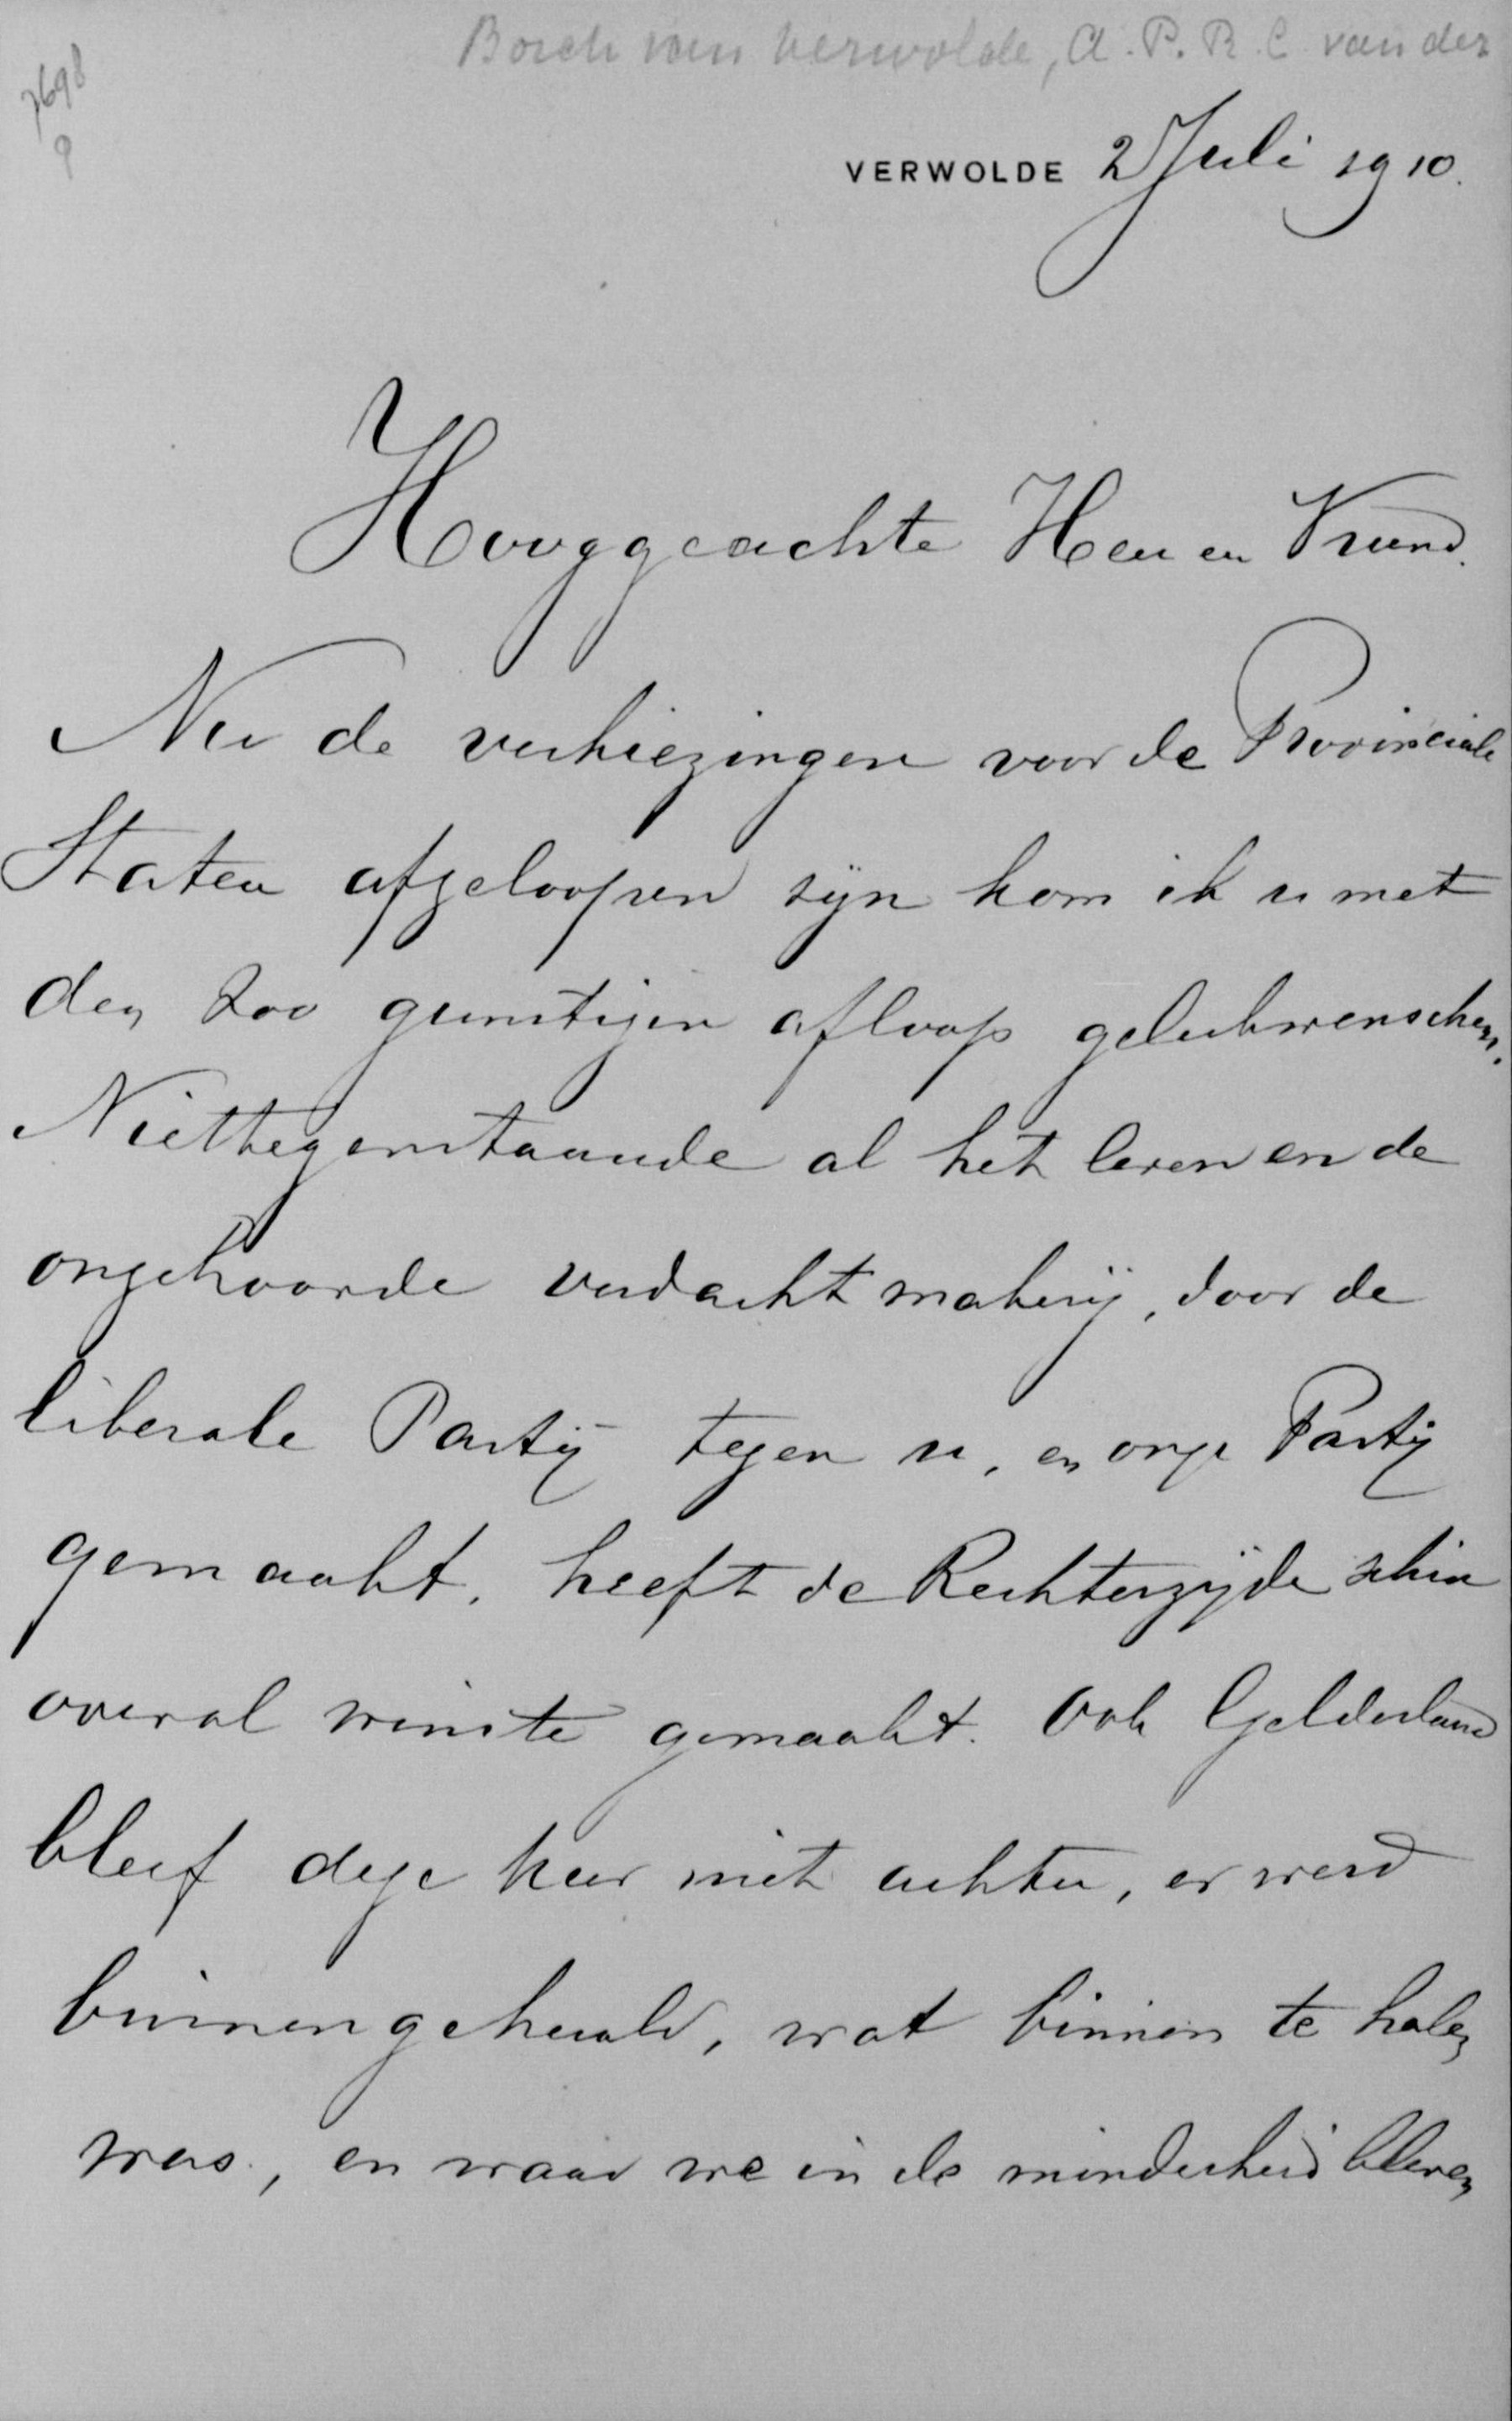 Bosch van Verwolde, A. P. R. C. van der
7698
9
VERWOLDE 2 Juli 1910.
Hooggeachte Heer en Vriend.
Nu de verkiezingen voor de Provinciale
Staten afgeloopen zijn kom ik u met
den zoo gunstigen afloop gelukwenschen.
Niettegenstaande al het en de
ongehoorde verdachtmaking, door de
liberale Partij tegen u, en onze Partij
gemaakt, heeft de Rechterzijde schier
overal winste gemaakt. Ook Gelderland
bleef deze keer niet achter, er werd
binnengehaald, wat binnen te halen
was, en waar we in de minderheid bleven